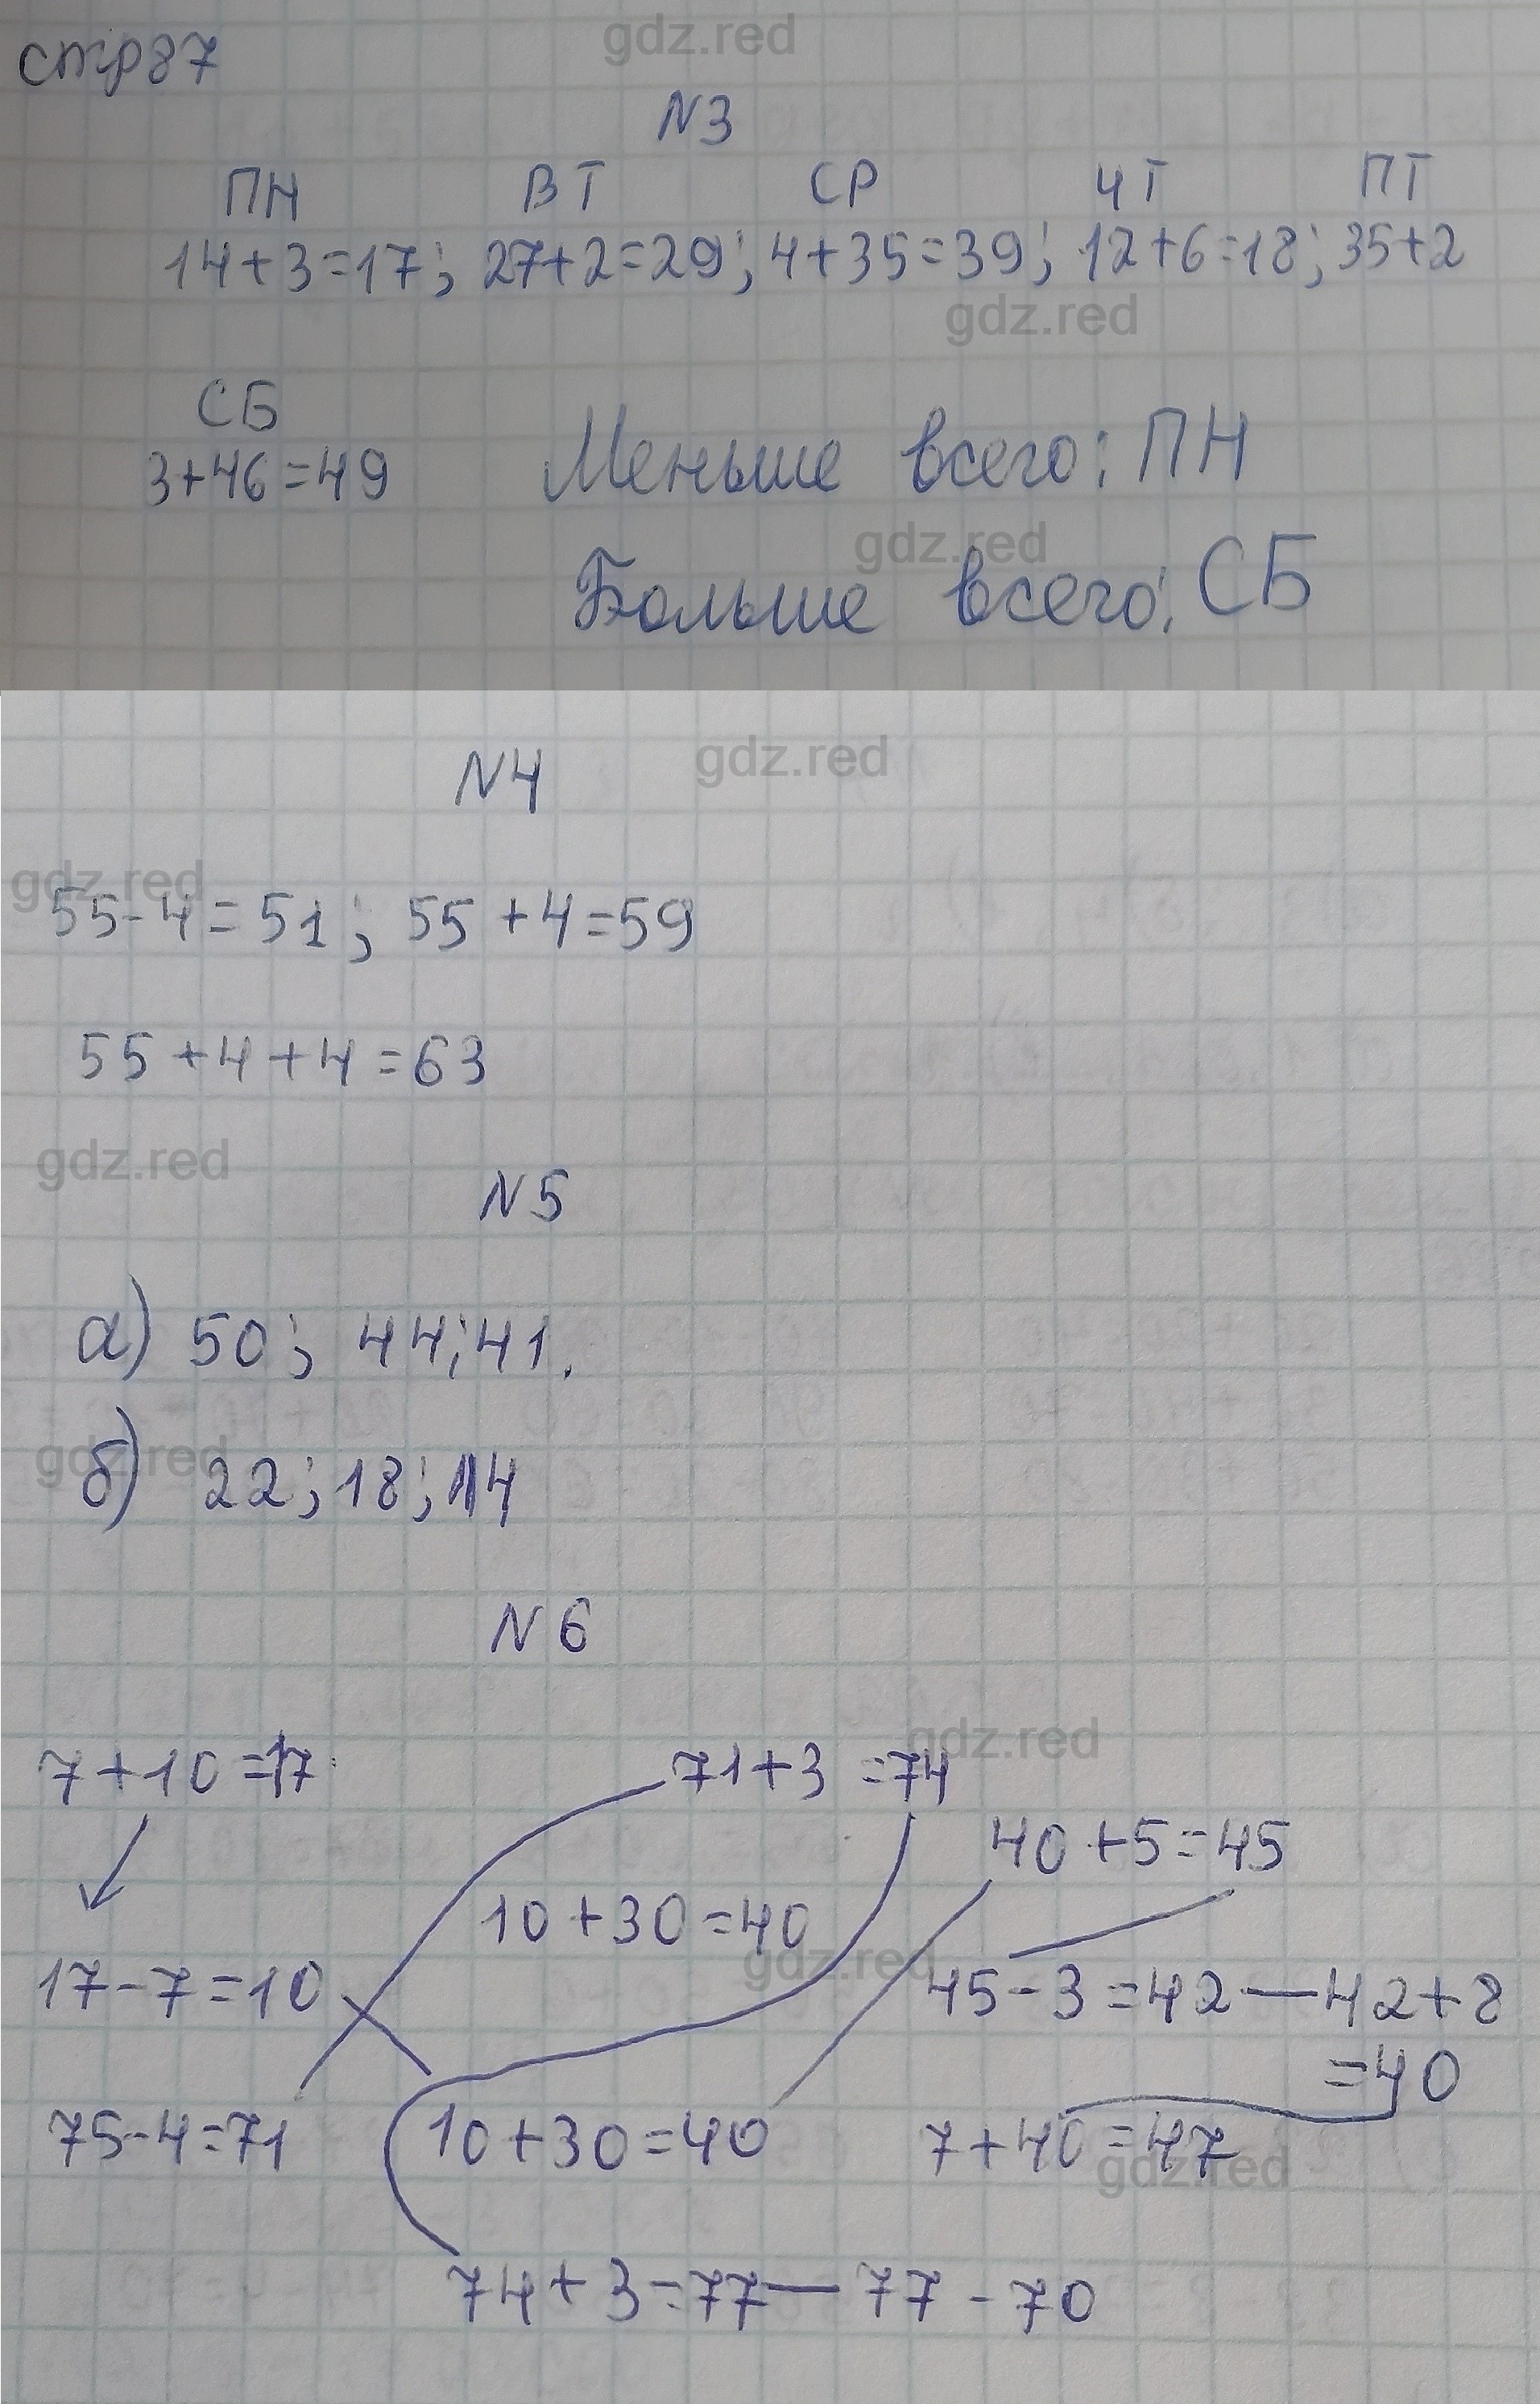 gdz.red
стр 87
N3
ПН ВТ СР ЧТ ПТ
14+3=17; 27+2=29; 4+35=39; 12+6=18; 35+2
gdz.red
СБ
3+46=49
Меньше всего: ПН
gdz.red
Больше всего: СБ
N4
gdz.red
gdz.red
55-4=51; 55+4=59
55+4+4=63
gdz.red
N5
а) 50; 44; 41.
gdz.red
б) 22; 18; 14
N6
gdz.red
7+10=17
71+3=74
40+5=45
10+30=40
gdz.red
17-7=10
45-3=42 — 42+8
=40
75-4=71
10+30=40
7+40=47
gdz.red
74+3=77 — 77-70